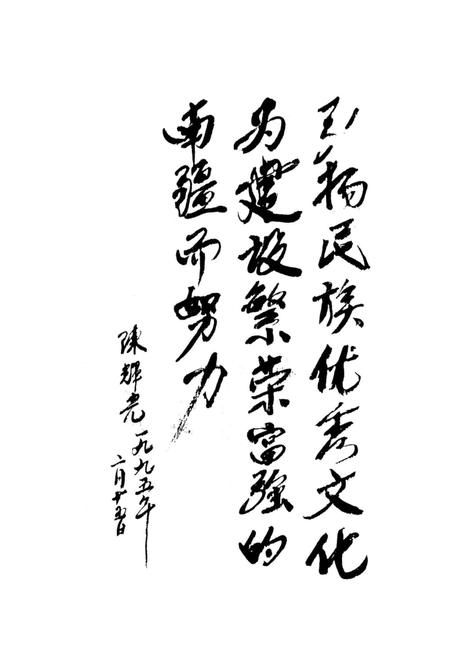 弘扬民族优秀文化
为建设繁荣富强的
南疆而努力
陳輝光一九九五年
六月十五日